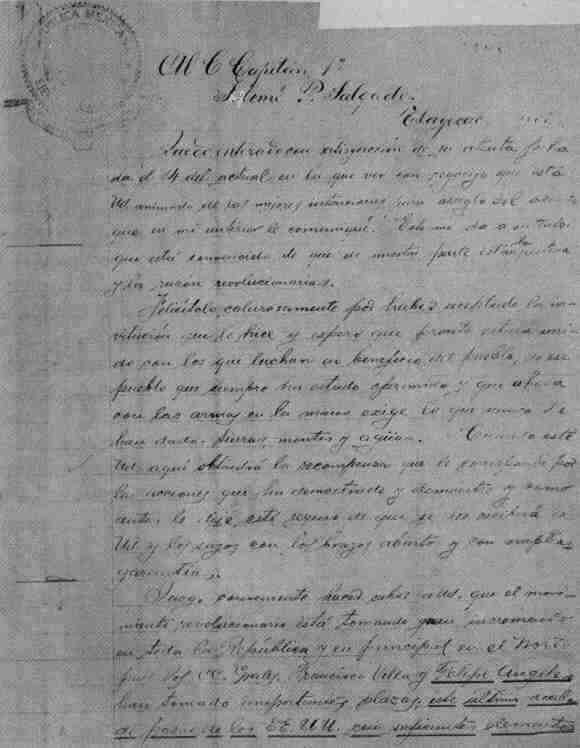 REPUBLICA MEXICANA
Al C. Capitán 1º
P. Salgado.
Quedo enterado con satisfacción de su atenta fecha
da el 14 del actual, en la que veo con regocijo que está
Ud. animado de las mejores intenciones para arreglo del asunto
que en mi anterior le comuniqué. Esto me da a entender
que está convencido de que de nuestra parte están la justicia
y la razón revolucionarias.
Felicítolo calurosamente por haber aceptado la in-
vitación que le hice y espero que pronto estará uni-
do con los que luchan en beneficio del pueblo, de ese
pueblo que siempre ha estado oprimido y que ahora
con las armas en la mano exige lo que nunca le
han dado: tierras, montes y aguas. Cuando esté
Ud. aquí obtendrá la recompensa que le corresponde por
las acciones que ha demostrado y demuestre y como
antes le dije, esté seguro de que se le recibirá a
Ud. y los suyos con los brazos abiertos y con amplias
garantías.
Juzgo conveniente hacer saber a Ud. que el movi-
miento revolucionario está tomando gran incremento
en toda la República y en principal en el Norte
pues los CC. Grales. Francisco Villa y Felipe Angeles
han tomado importantes plazas, este último acaba
de pasar de los EE. UU. con suficientes elementos